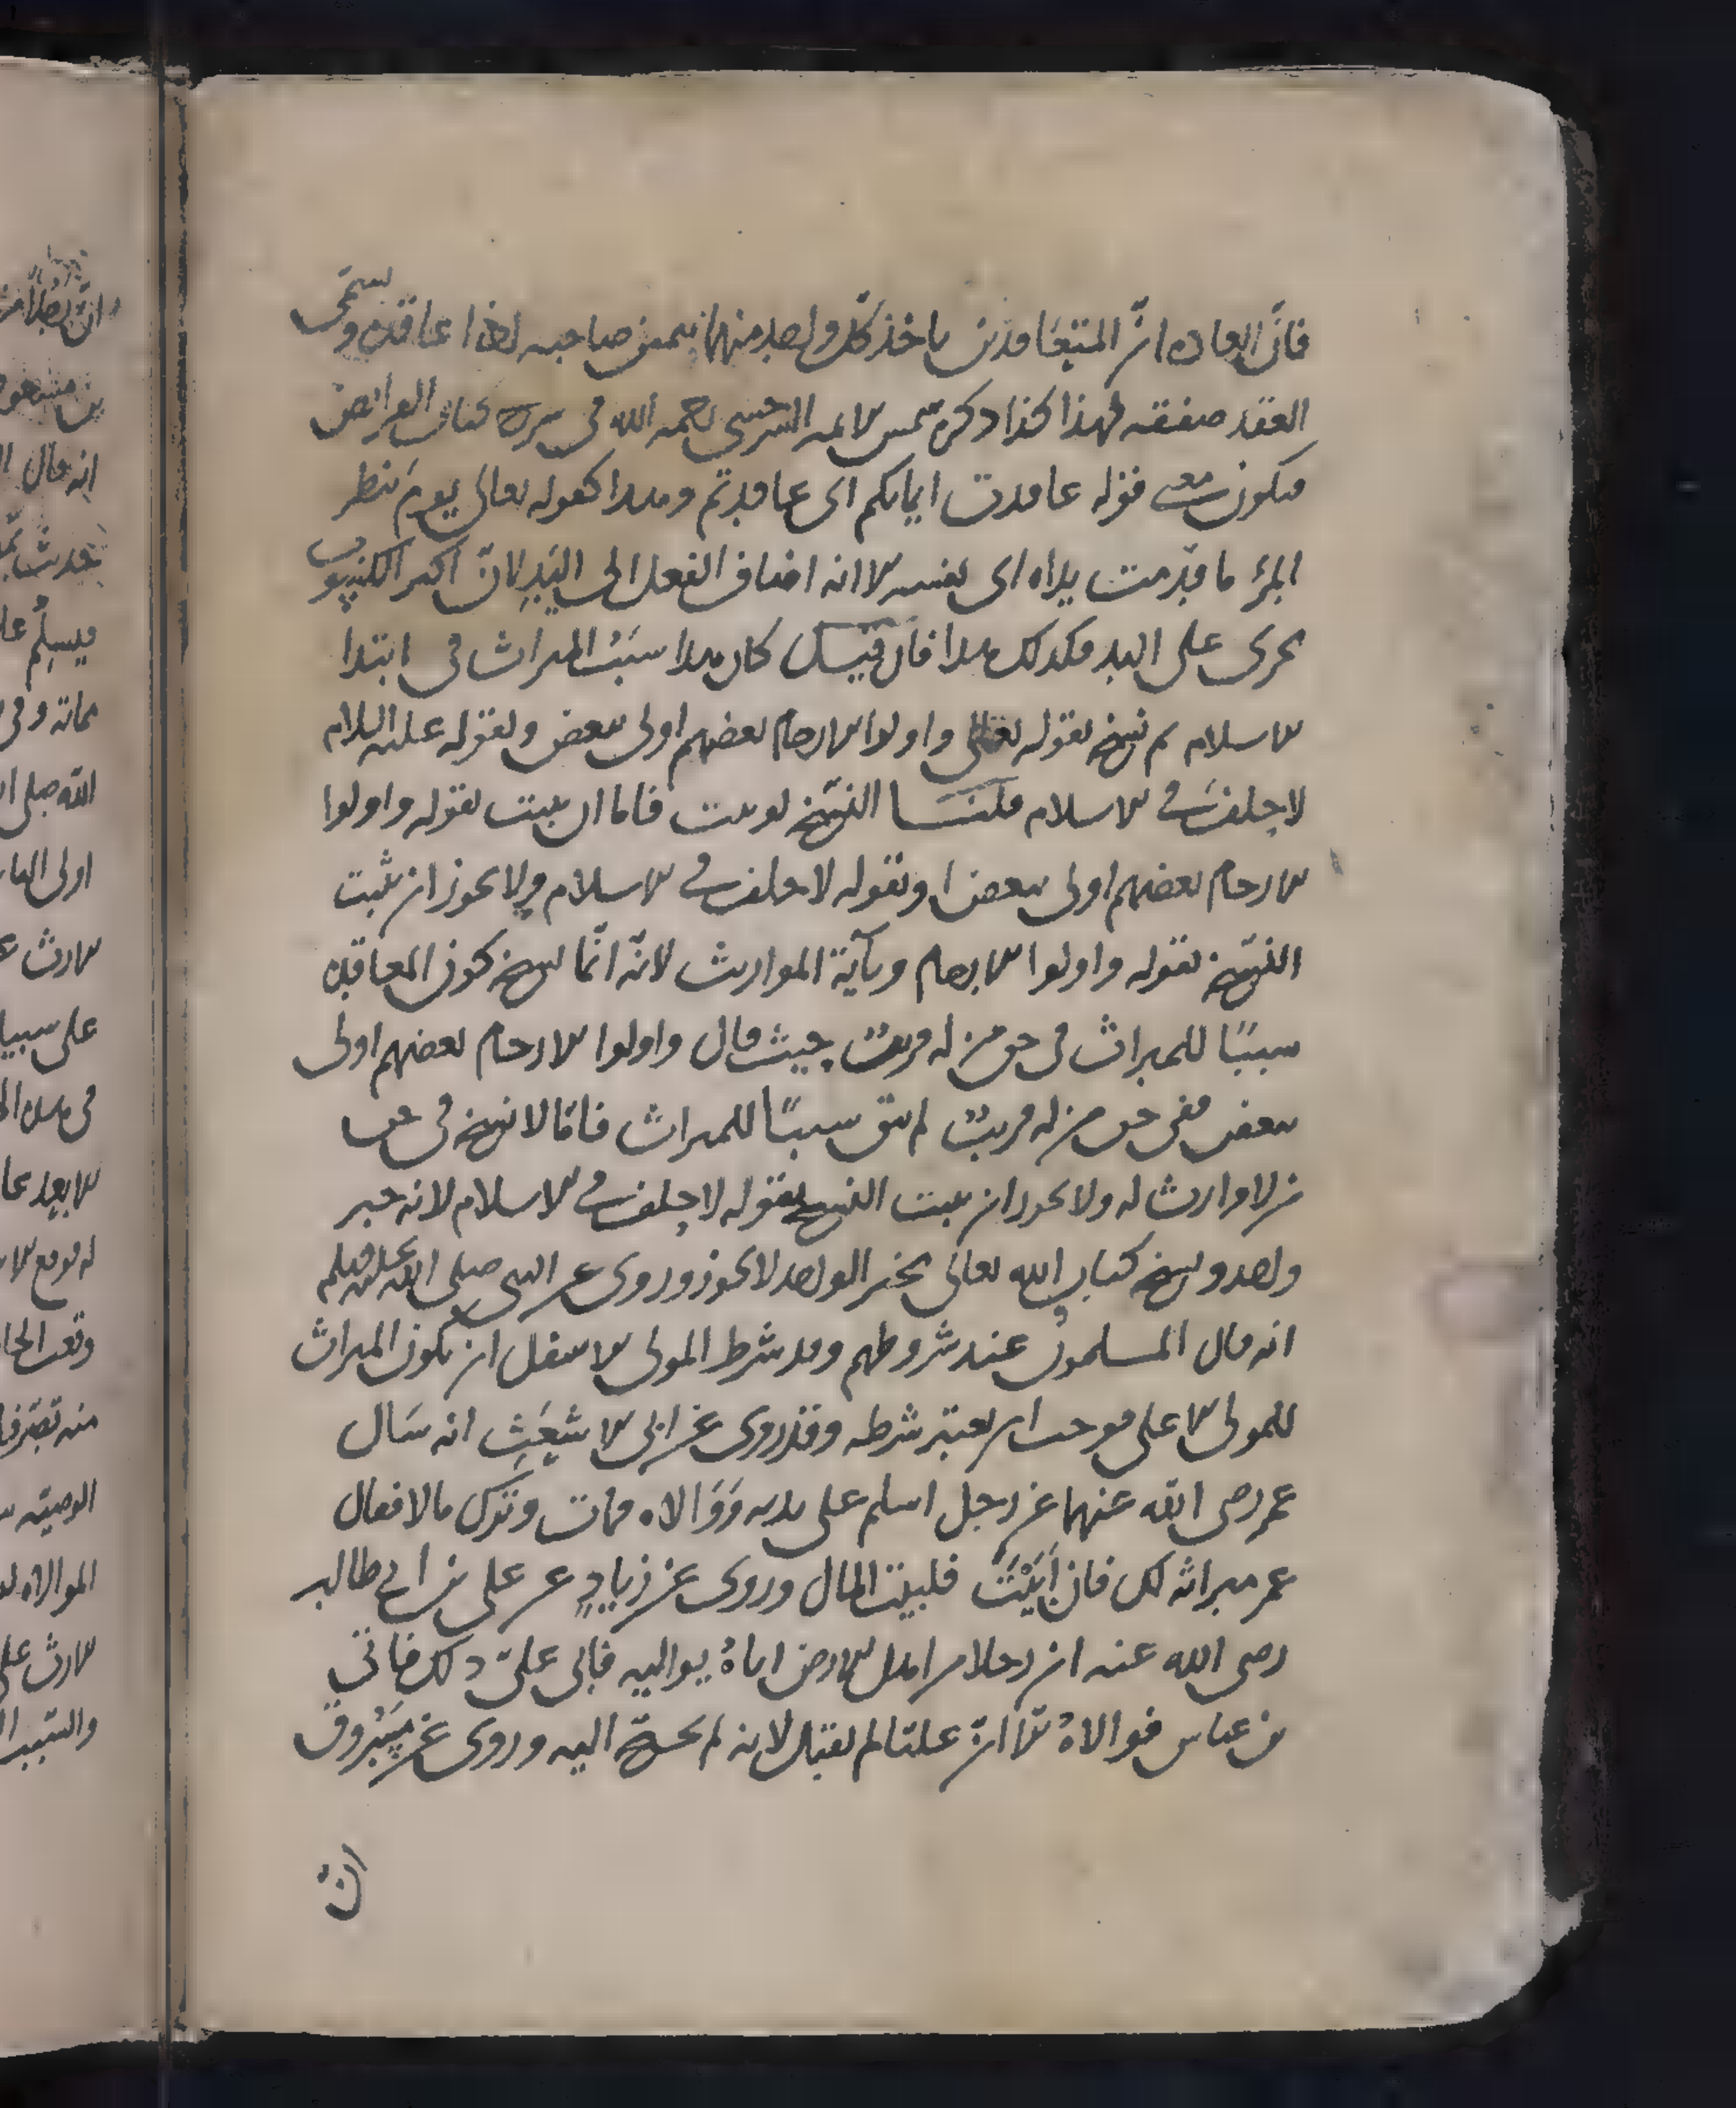 فانّ العاده انّ المتعاقدين ياخذ كلّ واحد منهما بيمين صاحبه اذا عاقده ويسمّى
العقد صفقه لهذا كذا ذكره شمس الايمه السرخسى رحمه الله فى شرح كتاب الفرايض
فيكون معنى قوله عاقدت ايمانكم اى عاقدتم وهذا كقوله تعالى يوم ينظر
المرؤ ما قدّمت يداه اى نفسه الا انه اضاف الفعل الى اليد لانّ اكثر الكسوب
يجرى على اليد فكذلك هذا فان قيل كان هذا سبب الميراث فى ابتدا
الاسلام ثم نسخ بقوله تعالى واولوا الارحام بعضهم اولى ببعض وبقوله عليه السلام
لا حلف فى الاسلام قلنا النسخ لو ثبت فاما ان يثبت بقوله واولوا
الارحام بعضهم اولى ببعض او بقوله لا حلف فى الاسلام ولا يجوز ان يثبت
النسخ بقوله واولوا الارحام وبآية المواريث لانّه انّما نسخ كون المعاقده
سببًا للميراث فى حق من له قريب حيث قال واولوا الارحام بعضهم اولى
ببعض ففى حق من له قريب لم يبق سببًا للميراث فامّا لا نسخ فى حق
من لا وارث له ولا يجوز ان يثبت النسخ بقوله لا حلف فى الاسلام لانه خبر
واحد ونسخ كتاب الله تعالى بخبر الواحد لا يجوز وروى عن النبى صلى الله عليه وسلم
انه قال المسلمون عند شروطهم وقد شرط المولى الاسفل ان يكون الميراث
للمولى الاعلى فوجب ان يعتبر شرطه وقد روى عن ابى الاشعث انه سَال
عمر رضى الله عنهما عن رجل اسلم على يديه ووَالاه فمات وترك مالا فقال
عمر ميراثه لك فان ابَيْتَ فلبيت المال وروى عن زيادٍ عن على بن ابى طالب
رضى الله عنه ان رجلا من اهل الارض اتاهُ يواليه فابى علىّ ذلك فاتى
بن عباس فوالاهُ ثمّ انّ عليّا لم يقبل لانه لم يحتج اليه وروى عن مسْروق
انّ